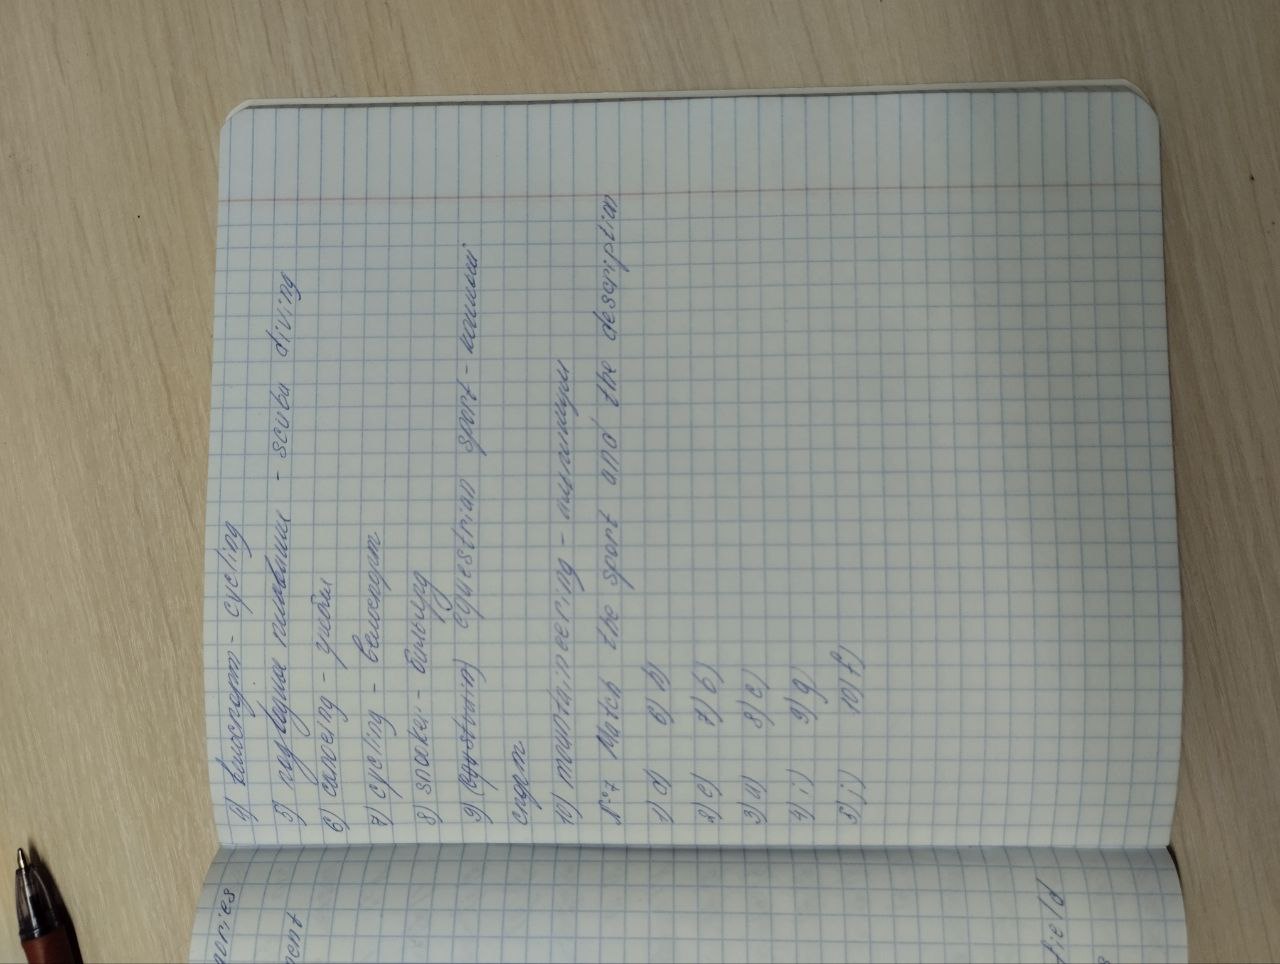 4) велоспорт - cycling
5) подводное плавание - scuba diving
6) canoeing - гребля
7) cycling - велоспорт
8) snooker - бильярд
9) equestrian sport - конный
спорт
10) mountaineering - альпинизм
№7 Match the sport and the description
1) d) 6) h)
2) e) 7) b)
3) a) 8) c)
4) i) 9) g)
5) j) 10) f)
ories
ent
field
s